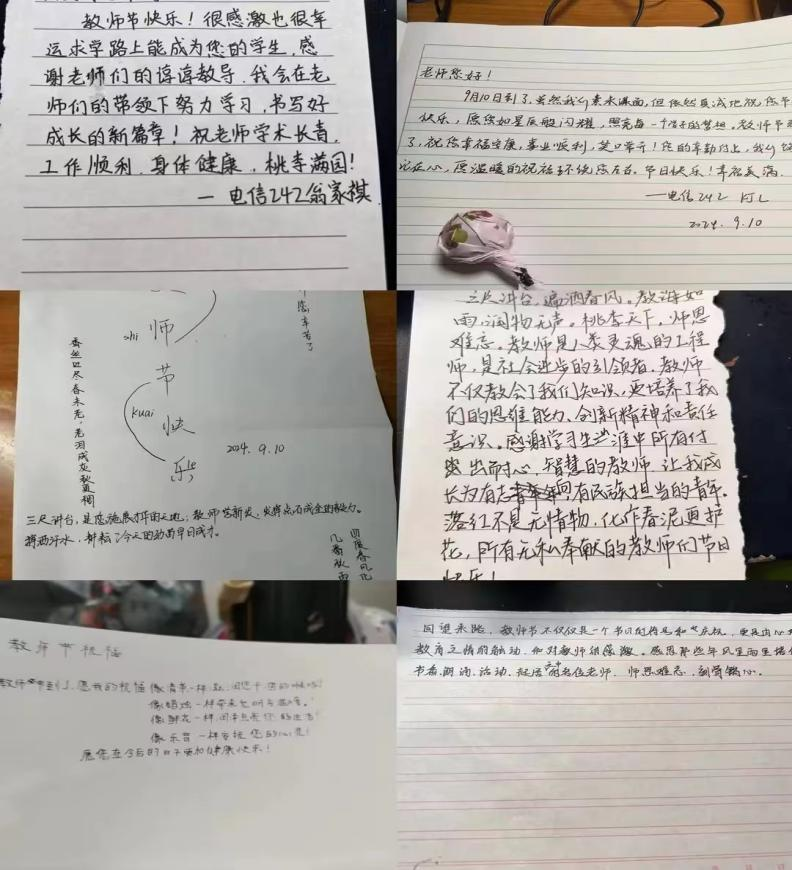 教师节快乐！很感激也很幸
运求学路上能成为您的学生，感
谢老师们的谆谆教导，我会在老
师们的带领下努力学习，书写好
成长的新篇章！祝老师学术长青，
工作顺利，身体健康，桃李满园！
— 电信242翁家祺
老师您好！
9月10日到了，虽然我们素未谋面，但依然真诚地祝您节
快乐，愿您如星辰般闪耀，照亮每一个学子的梦想。教师节
了，祝您幸福安康，事业顺利，笑口常开！您的辛勤付出，我们
记在心，愿温暖的祝福环绕您左右。节日快乐！幸福美满.
—电信242
2024. 9.10
您辛苦了
shi 师
节
kuai 快
乐le
2024. 9.10
春丝
三尺讲台，是您施展才华的天地；教师
挥洒汗水，耕耘了今天的
三尺讲台，遍洒春风。教诲如
雨，润物无声。桃李天下，师恩
难忘。教师是人类灵魂的工程
师，是社会进步的引领者，教师
不仅教会了我们知识，更培养了我
们的思维能力、创新精神和责任
意识。感谢学习生涯中所有付
出耐心、智慧的教师，让我成
长为有志有民族担当的青年。
落红不是无情物，化作春泥更护
花，所有无私奉献的教师们节日
快乐！
教师节祝福
教师节到了，愿我的祝福像清茶一样
像蜡烛一样带来光明与温度。
像鲜花一样
像乐音一样
愿您在今后的日子更加健康快乐！
回望来路，教师节不仅仅是一个节日的符号和庆祝，更是内心
教育之情的触动，和对教师很感激。感恩那些年风里雨里
书香，朗诵，活动，的各位老师，师恩难忘，刻骨铭心。